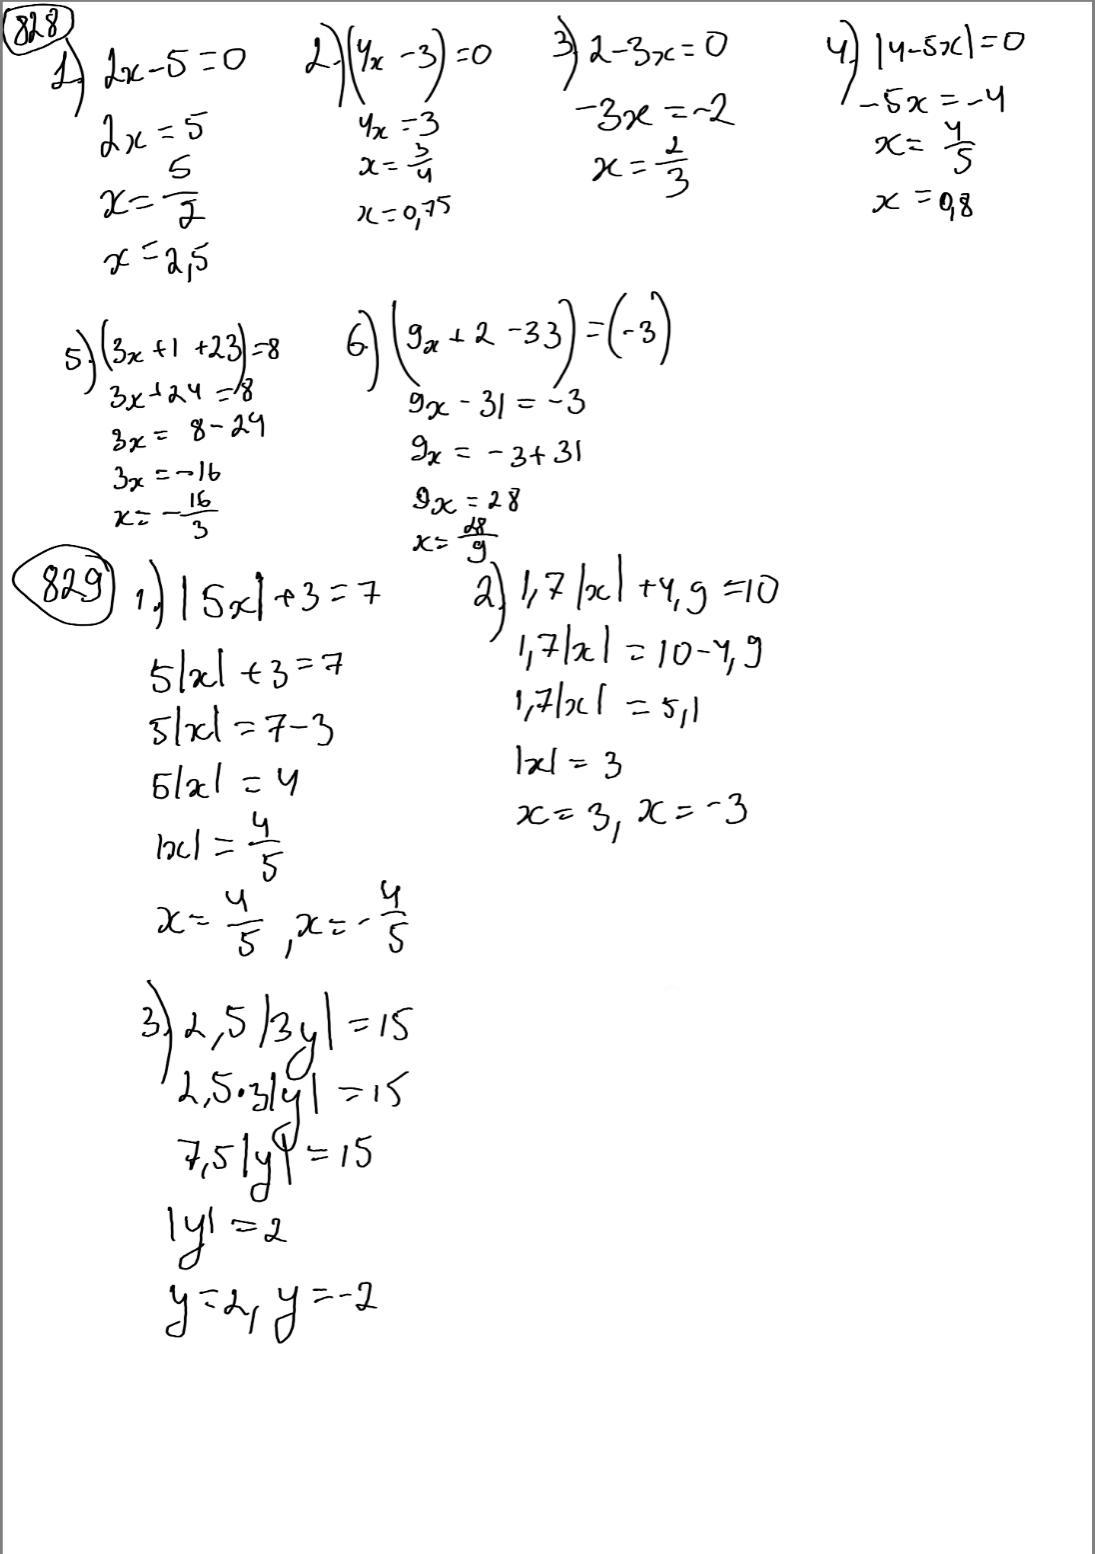 828
1) 2x-5=0
2x=5
x=5/2
x=2,5
2) (4x-3)=0
4x=3
x=3/4
x=0,75
3) 2-3x=0
-3x=-2
x=2/3
4) |4-5x|=0
-5x=-4
x=4/5
x=0,8
5) (3x+1+23)=8
3x+24=8
3x=8-24
3x=-16
x=-16/3
6) (9x+2-33)=(-3)
9x-31=-3
9x=-3+31
9x=28
x=28/9
829
1) |5x|+3=7
5|x|+3=7
5|x|=7-3
5|x|=4
|x|=4/5
x=4/5, x=-4/5
2) 1,7|x|+4,9=10
1,7|x|=10-4,9
1,7|x|=5,1
|x|=3
x=3, x=-3
3) 2,5|3y|=15
2,5·3|y|=15
7,5|y|=15
|y|=2
y=2, y=-2